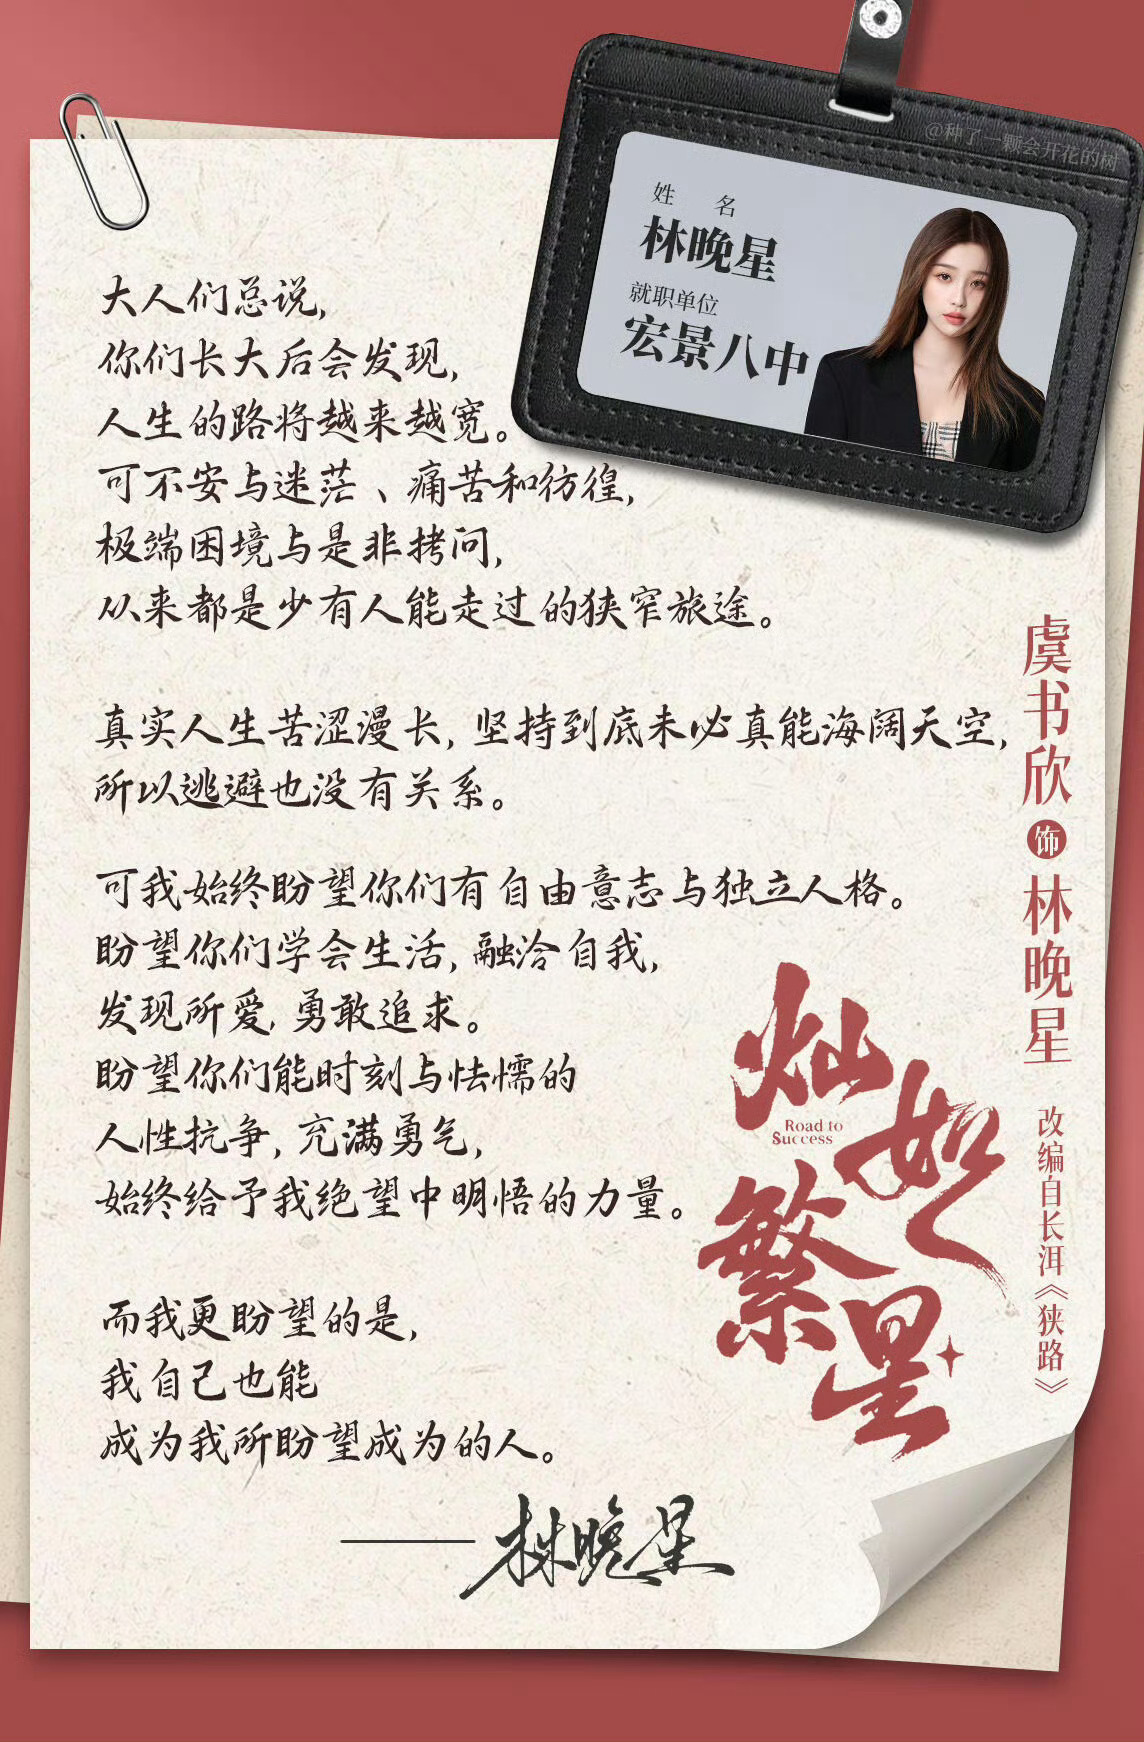 @种了一颗会开花的树
姓 名
林晚星
就职单位
宏景八中
大人们总说,
你们长大后会发现,
人生的路将越来越宽。
可不安与迷茫、痛苦和彷徨,
极端困境与是非拷问,
从来都是少有人能走过的狭窄旅途。
真实人生苦涩漫长, 坚持到底未必真能海阔天空,
所以逃避也没有关系。
可我始终盼望你们有自由意志与独立人格。
盼望你们学会生活, 融洽自我,
发现所爱, 勇敢追求。
盼望你们能时刻与怯懦的
人性抗争, 充满勇气,
始终给予我绝望中明悟的力量。
而我更盼望的是,
我自己也能
成为我所盼望成为的人。
——林晚星
虞书欣饰林晚星
改编自长洱《狭路》
灿如繁星
Road to
Success